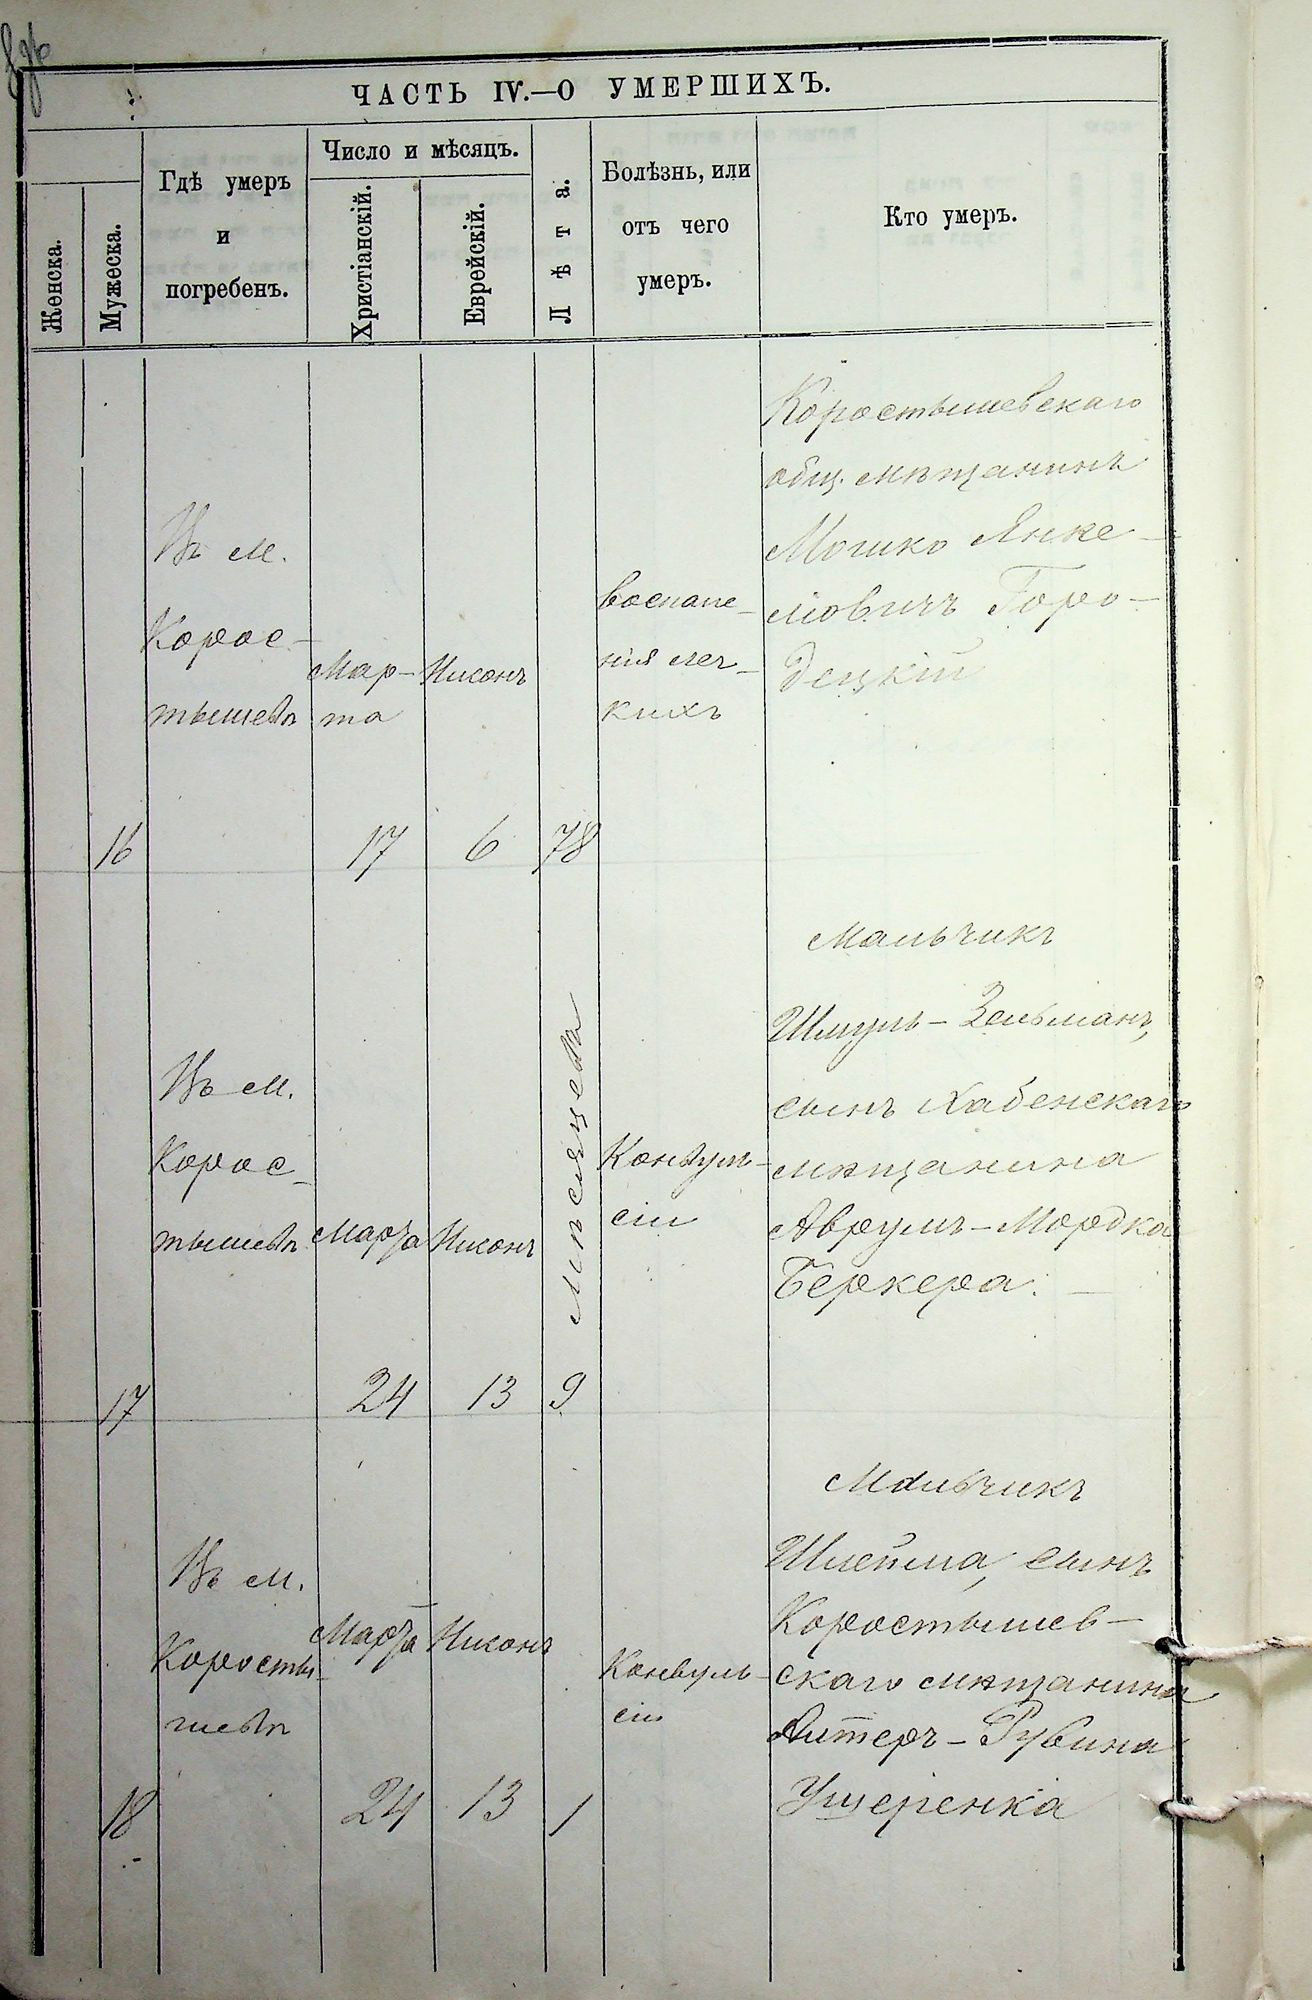 ЧАСТЬ IV.—О УМЕРШИХЪ.
Женска.
Мужеска.
Гдѣ умеръ
и
погребенъ.
Число и мѣсяцъ.
Христіанскій.
Еврейскій.
Лѣта.
Болѣзнь, или
отъ чего
умеръ.
Кто умеръ.
16
Въ м.
Корос-
тышевѣ
Мар-
та
17
Нисонъ
6
78
воспале-
нія лег-
кихъ
Коростышевскаго
общ. мѣщанинъ
Мошко Янке-
лювичъ Горо-
децкій
17
Въ м.
Корос-
тышевѣ
Марта
24
Нисонъ
13
Мѣсяцевъ
9
Конвуль-
сіи
Мальчикъ
Шмуль-Зельманъ,
сынъ Хабенскаго
мѣщанина
Аврумъ-Мордка
Беркера.
18
Въ м.
Коросты-
шевѣ
Марта
24
Нисонъ
13
1
Конвуль-
сіи
Мальчикъ
Шлейма, сынъ
Коростышев-
скаго мѣщанина
Алтеръ-Рувина
Ушеренка